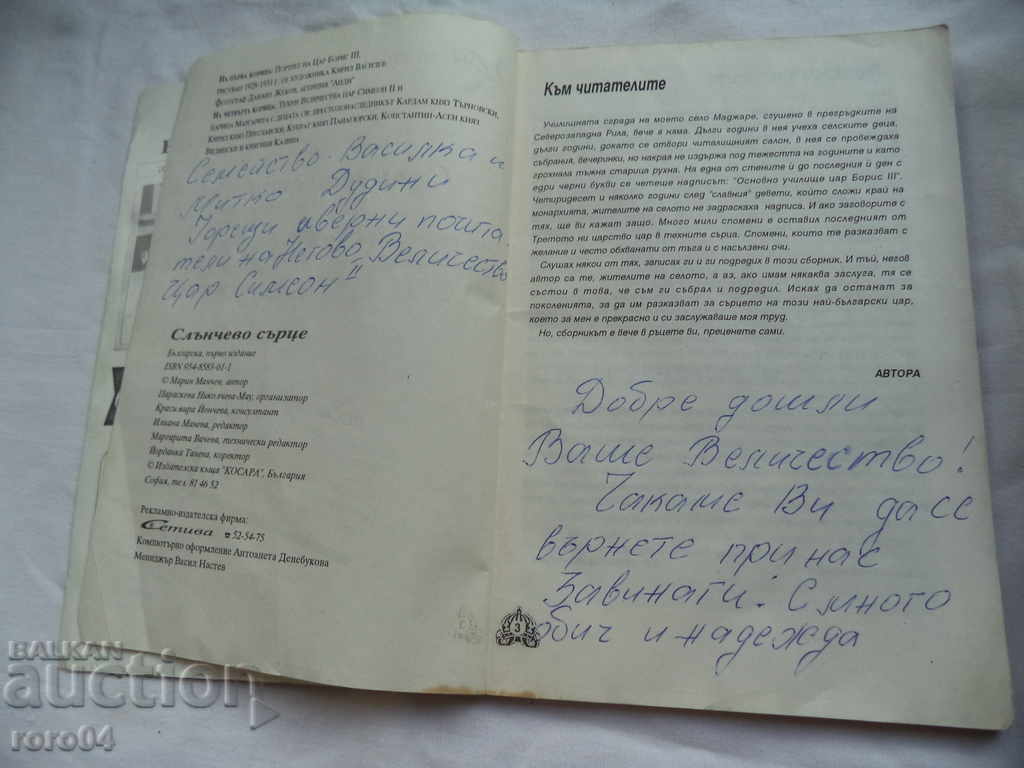 На първа корица: Портрет на Цар Борис III,
рисуват 1929-1931 г. от художника Кирил
фотограф
На четвърта корица: Техни Величества цар Симеон II и
царица Маргарита с децата си: престолонаследникът Кардам княз Търновски,
Кирил княз Преславски, Кубрат княз Панагюрски, Константин-Асен княз
Видински и княгиня Калина
Семейство - Василка и
Митко Дудини
Горещи и верни почита-
тели на Негово Величество
Цар Симеон II
Слънчево сърце
Българска, първо издание
ISBN 954-8583-01-1
© Марин Манчев, автор
Параскева Николчева-Мау, организатор
Красимира Йончева, консултант
Илиана Мачева, редактор
Маргарита Вачева, технически редактор
Йорданка Танева, коректор
© Издателска къща "КОСАРА", България
София, тел. 81 46 52
Рекламно-издателска фирма:
Сетива ☎ 52-54-75
Компютърно оформление Антоанета Денебукова
Мениджър Васил Настев
Към читателите
Училищната сграда на моето село Маджаре, сгушено в прегръдките на
Северозападна Рила, вече я няма. Дълги години в нея учеха селските деца,
дълги години, докато се отвори читалищният салон, в нея се провеждаха
събрания, вечеринки, но накрая не издържа под тежестта на годините и като
грохнала тъжна старица рухна. На една от стените ѝ до последния ѝ ден с
едри черни букви се четеше надписът: "Основно училище цар Борис III".
Четиридесет и няколко години след "славния" девети, който сложи край на
монархията, жителите на селото не задраскаха надписа. И ако заговорите с
тях, ще ви кажат защо. Много мили спомени е оставил последният от
Третото ни царство цар в техните сърца. Спомени, които те разказват с
желание и често обхванати от тъга и с насълзени очи.
Слушах някои от тях, записах ги и ги подредих в този сборник. И тъй, негов
автор са те, жителите на селото, а аз, ако имам някаква заслуга, тя се
състои в това, че съм ги събрал и подредил. Исках да останат за
поколенията, за да им разказват за сърцето на този най-български цар,
което за мен е прекрасно и си заслужаваше моя труд.
Но, сборникът е вече в ръцете ви, преценете сами.
АВТОРА
Добре дошли
Ваше Величество!
Чакаме Ви да се
върнете при нас
Завинаги! С много
обич и надежда
3
BALKAN
auction
roro04